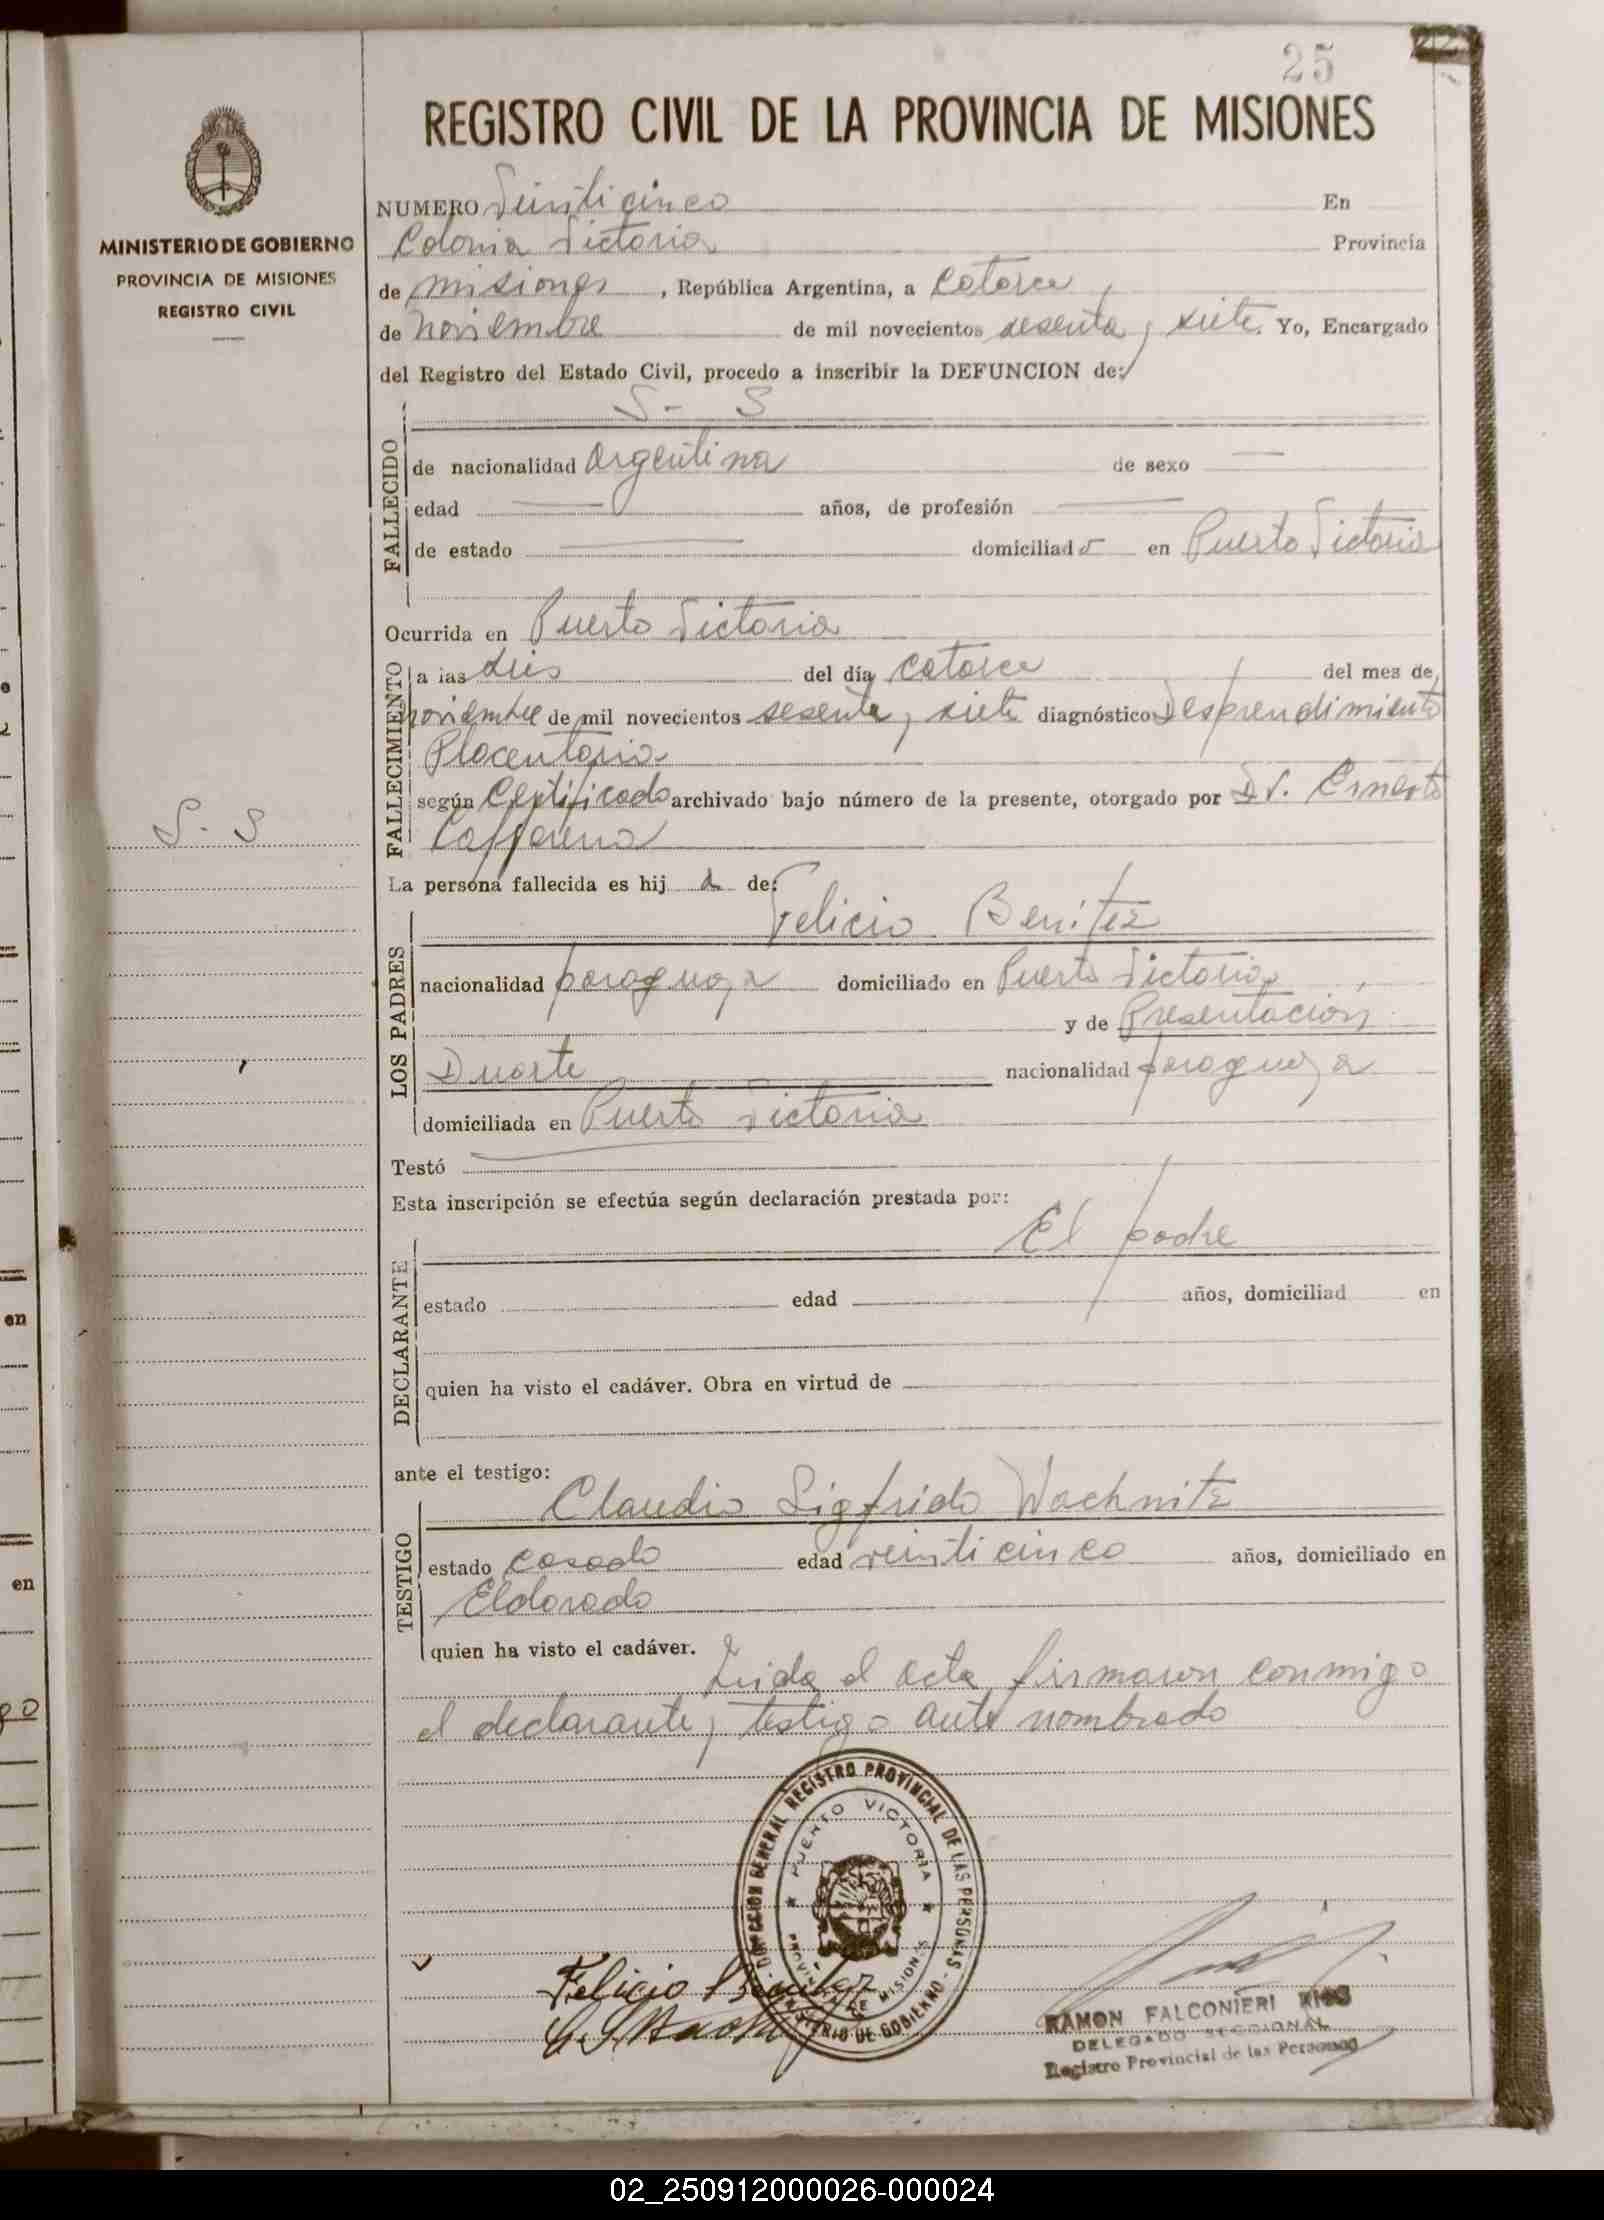 25
REGISTRO CIVIL DE LA PROVINCIA DE MISIONES
MINISTERIO DE GOBIERNO
PROVINCIA DE MISIONES
REGISTRO CIVIL
NUMERO Veinticinco En
Colonia Victoria Provincia
de Misiones, República Argentina, a Catorce
de noviembre de mil novecientos sesenta y siete. Yo, Encargado
del Registro del Estado Civil, procedo a inscribir la DEFUNCION de:
S- S
FALLECIDO
de nacionalidad Argentina de sexo —
edad — años, de profesión —
de estado — domiciliado en Puerto Victoria
Ocurrida en Puerto Victoria
FALLECIMIENTO
a las del día Catorce del mes de
noviembre de mil novecientos sesenta y siete diagnóstico Desprendimiento
Placentario
según Certificado archivado bajo número de la presente, otorgado por Dr. Ernesto
S. S
La persona fallecida es hij de:
LOS PADRES
Felicio Benitez
nacionalidad paraguaya domiciliado en Puerto Victoria
y de Presentación
Duarte nacionalidad paraguaya
domiciliada en Puerto Victoria
Testó —
Esta inscripción se efectúa según declaración prestada por:
DECLARANTE
El padre
estado edad años, domiciliad en
quien ha visto el cadáver. Obra en virtud de
ante el testigo:
TESTIGO
Claudio Sigfrido Wachnitz
estado casado edad veinticinco años, domiciliado en
Eldorado
quien ha visto el cadáver.
Leida el acta firmaron conmigo
el declarante y testigo ante nombrado
DIRECCION GENERAL REGISTRO PROVINCIAL DE LAS PERSONAS - MINISTERIO DE GOBIERNO
PUERTO VICTORIA
PROVINCIA DE MISIONES
Felicio Benitez
RAMON FALCONIERI RIOS
DELEGADO SECCIONAL
Registro Provincial de las Personas
en
en
02_250912000026-000024